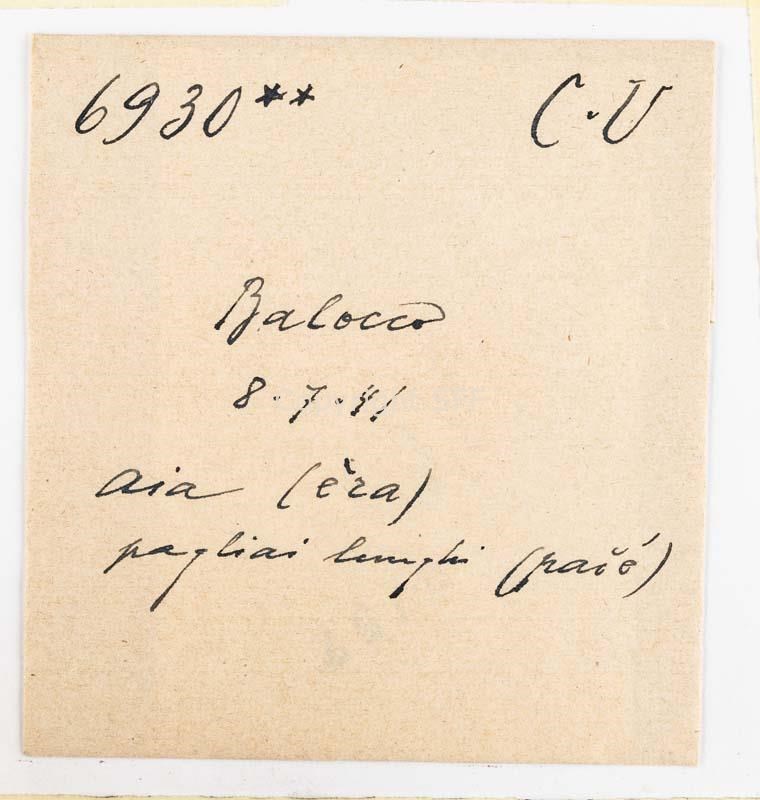 6930** C.V
Balocco
8.7.41
aia (èra)
pagliai lunghi (pašé)